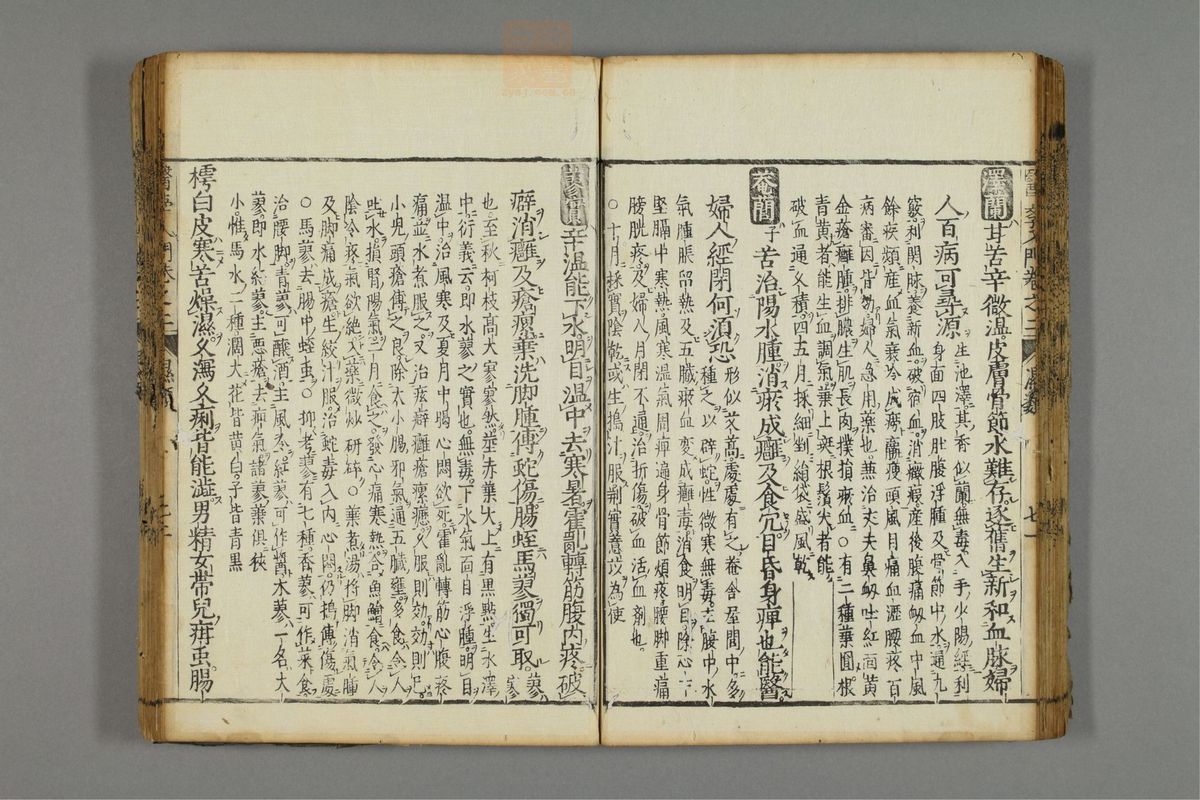 澤蘭甘苦辛微溫皮膚骨節水難存逐舊生新和血脉婦
人百病可尋源生池澤其香似蘭無毒入手少陽經利
身面四肢肚腹浮腫及骨節中水通九
竅利關脉養新血破宿血消癥瘕産後腹痛衂血中風
餘疾頻産血氣衰冷成癆羸瘦頭風目痛血瀝腰疼百
病審因皆効婦人急用藥也兼治丈夫鼻衂吐紅面黄
金瘡癰腫排膿生肌長肉撲損瘀血○有二種葉圓根
青黄者能生血調氣葉上斑根鬚尖者能
破血通久積四五月採細剉絹袋盛風乾
菴䕡子苦治陽水腫消瘀成癰及食宂目昏身痺也能醫
婦人經閉何須恐形似艾蒿處處有之菴舍屋間中多
種之以辟蛇性微寒無毒去腹中水
氣臚脹留熱及五臟瘀血變成癰毒消食明目除心下
堅膈中寒熱風寒濕氣周痺遍身骨節煩疼腰脚重痛
膀胱疼及婦人月閉不通治折傷破血活血劑也
○十月採實陰乾或生搗汁服荆實薏苡為使
蓼實辛溫能下水明目溫中去寒暑霍亂轉筋腹内疼破
癖消癰及瘡癭葉洗脚腫傅蛇傷腸蛭馬蓼獨可取蓼
也至秋柯枝高大寥寥然莖赤葉大上有黒點生水澤
中衍義云即水蓼之實也無毒下水氣面目浮腫明目
溫中治風寒及夏月中暍心悶欲死霍亂轉筋心腹疼
痛並水煮服之又治痃癖癰瘡瘰癧久服則効効則已
小兒頭瘡傅之良除大小腸邪氣通五臟壅多食令人
吐水損腎陽氣二月食之發心痛寒熱合魚鱠食令人
陰冷疼氣欲絶○葉微炒研碎○葉煮湯捋脚消氣腫
及脚痛成瘡生絞汁服治蛇毒入内心悶仍搗傅傷處
○馬蓼去腸中蛭虫○抑考蓼有七種香蓼可作菜食
治腰脚青蓼可釀酒主風冷紅蓼可作醬木蓼一名大
蓼即水紅蓼主惡瘡去痺氣諸蓼葉俱狹
小惟馬水二種濶大花皆黄白子皆青黒
樗白皮寒苦燥濕久瀉久痢皆能澁男精女帶兒疳虫腸